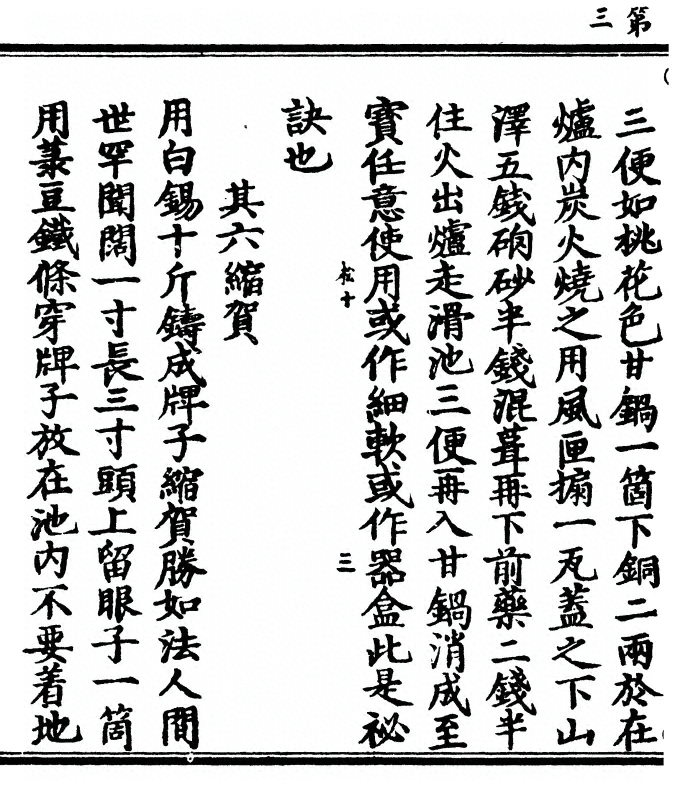 第三
三便如桃花色甘鍋一箇下銅二兩於在
爐內炭火燒之用風匣搧一瓦蓋之下山
澤五錢硇砂半錢混葺再下前藥二錢半
住火出爐走滑池三便再入甘鍋消成至
寶任意使用或作細軟或作器盒此是祕
松十 三
訣也
其六縮賀
用白錫十斤鑄成牌子縮賀勝如法人間
世罕聞闊一寸長三寸頭上留眼子一箇
用菉豆鐵條穿牌子放在池內不要着地